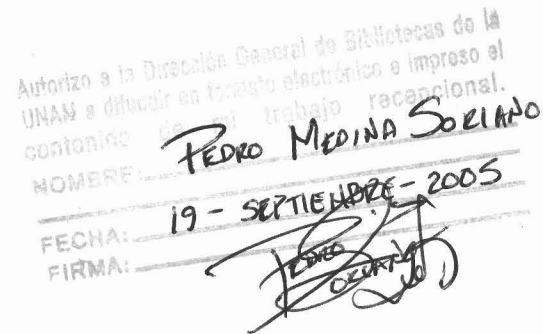 Autorizo a la Dirección General de Bibliotecas de la
UNAM a difundir en formato electrónico e impreso el
contenido de mi trabajo recepcional.
NOMBRE: PEDRO MEDINA SORIANO
FECHA: 19 - SEPTIEMBRE - 2005
FIRMA: PEDRO SORIANO